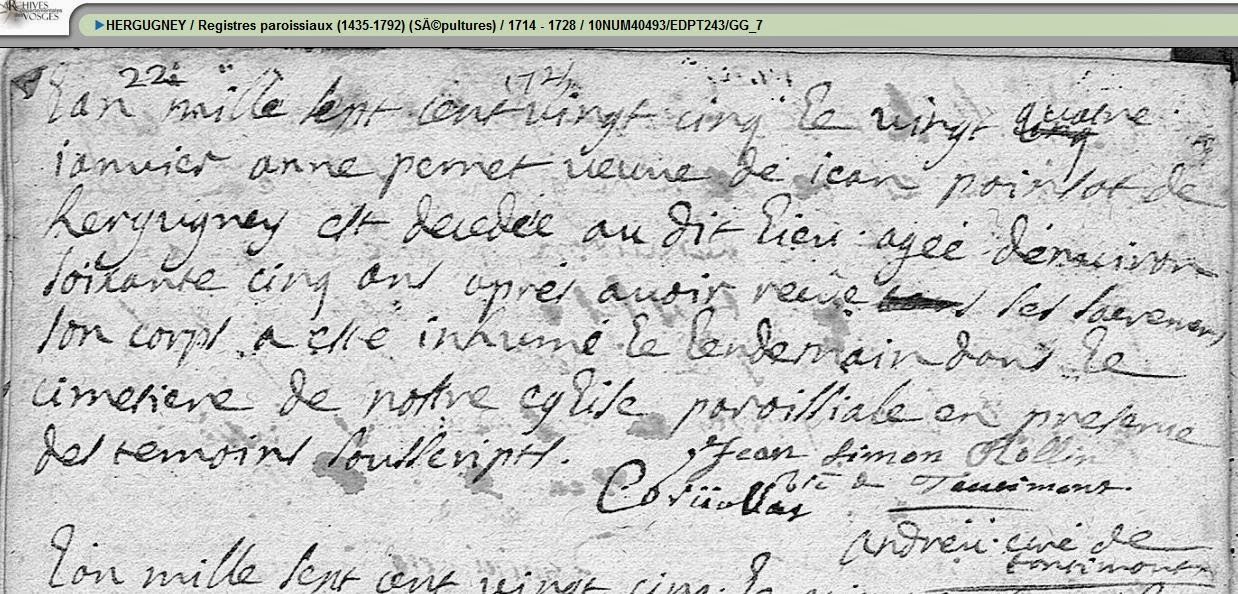 ARCHIVES
départementales
des VOSGES
►HERGUGNEY / Registres paroissiaux (1435-1792) (SÃ©pultures) / 1714 - 1728 / 10NUM40493/EDPT243/GG_7
22e
L'an mille sept cent vingt cinq le vingt quatre
ianvier anne pernet veuve de iean poinsot de
hergugney est decedée au dit lieu agée d'environ
soixante cinq ans aprés auoir receüe les sacremens
son corps a esté inhumé le lendemain dans le
cimetiere de nostre eglise paroissiale en presence
des temoins soubscripts.
Jean Simon Rollin
de
andreu curé de
L'an mille sept cent vingt cinq le